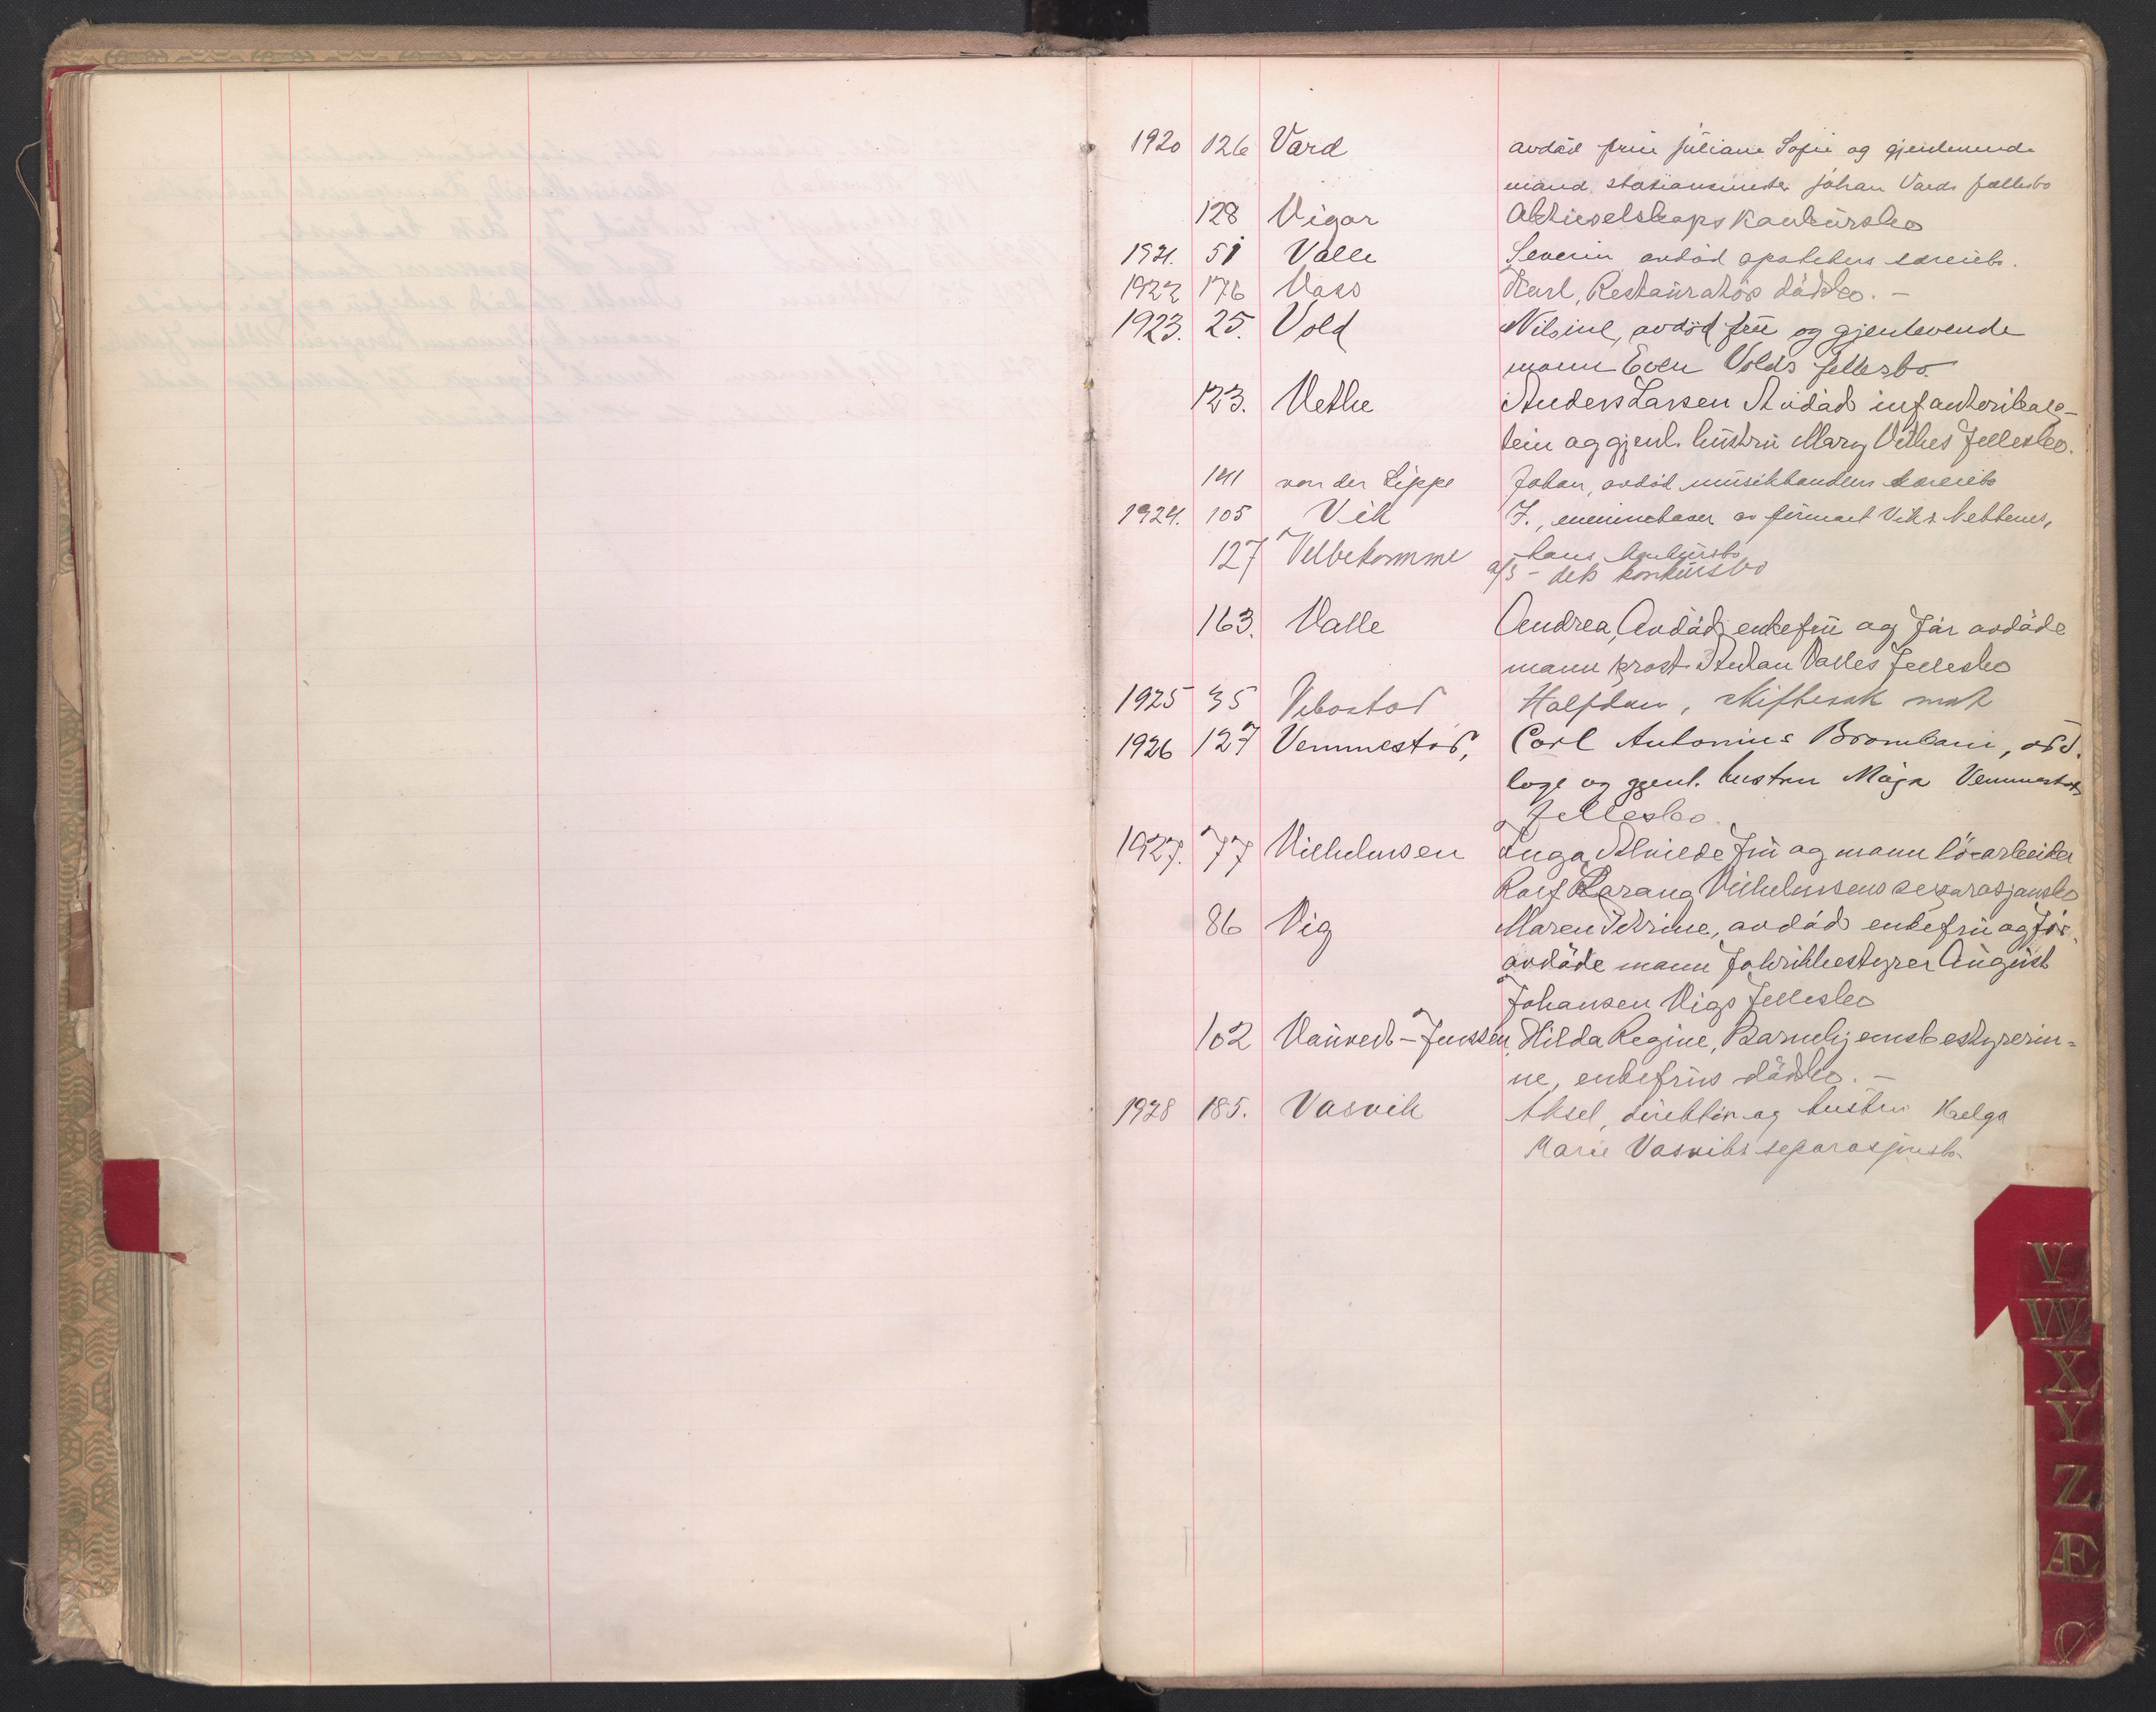 1920 126 Vard avdöd frue Juliane Sofie og gjenlevende
mand stasionsmester Johan Vards fællesbo
128 Vigor Aktieselskaps Konkursbo
1921. 51 Valle Severin avdöd apotekers særeiebo.
1922 176 Vass Karl, Restauratös dödsbo. —
1923. 25. Vold Nilsine, avdöd frü og gjenlevende
mann Even Volds fellesbo.
123. Vethe Anders Larsen Avdöd infanterikap-
tein og gjenl. hüstrü Mary Vethes Fellesbo.
141 von der Lippe Johan, avdöd müsikhandlers særeiebo
1924. 105 Vik J., eneinnehaver av firmaet Vik &
hans konkürsbo
127 Velbekomme a/s - dets konkürsbo
163. Valle Andrea, Avdöd enkefrü og för avdöde
mann prost Anton Valles Fellesbo
1925 35 Vebostad Halfdan, skiftesak mot
1926 127 Vemmestad, Carl Antonius Brombani, avd.
loge og gjenl. hustru Maja Vemmestads
Fellesbo.
1927. 77 Vilhelmsen Inga Alvilde frü og mann lösarbeider
Rolf Lorang Vilhelmsens separasjonsbo
86 Vig Maren Petrine, avdöd enkefrü og för
avdöde mann Fabrikkbestyrer Aügüst
Johansen Vigs Fellesbo
102 Vauvert-Jenssen, Hilda Regine, Barnehjemsbestyrerin=
ne, enkefrüs dödsbo. —
1928 185. Vasvik Aksel, direktör og hustru Helga
Marie Vasviks separasjonsbo
V
W
X
Y
Z
Æ
Ø